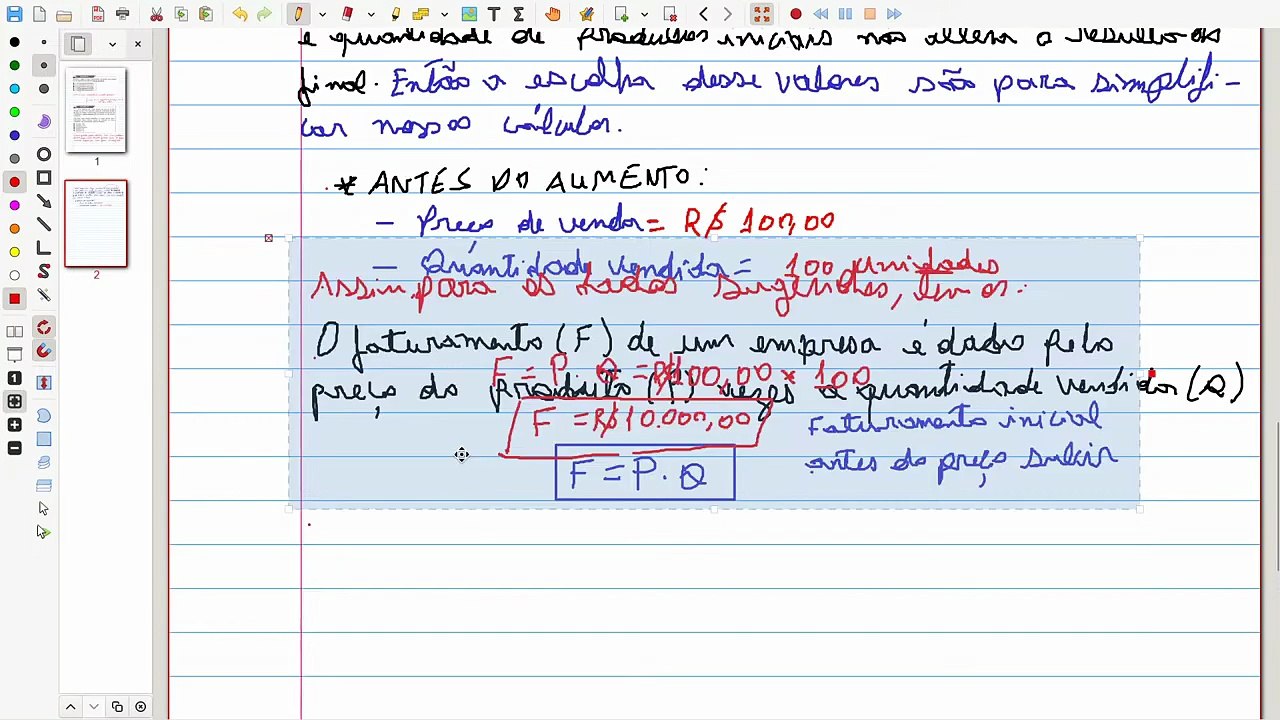 e quantidade de produtos iniciais não altera o resultado
final. Então a escolha desse valores são para simplifi-
car nossos cálculos.
* ANTES DO AUMENTO:
- Preço de venda = R$ 100,00
- Quantidade vendida = 100 unidades
Assim, para os dados sugeridos, temos:
O faturamento (F) de um empresa é dado pelo
F = P . Q = R$100,00 × 100
preço do produto (P) vezes a quantidade vendida (Q)
F = R$10.000,00
Faturamento inicial
antes do preço subir
F = P . Q
1
2